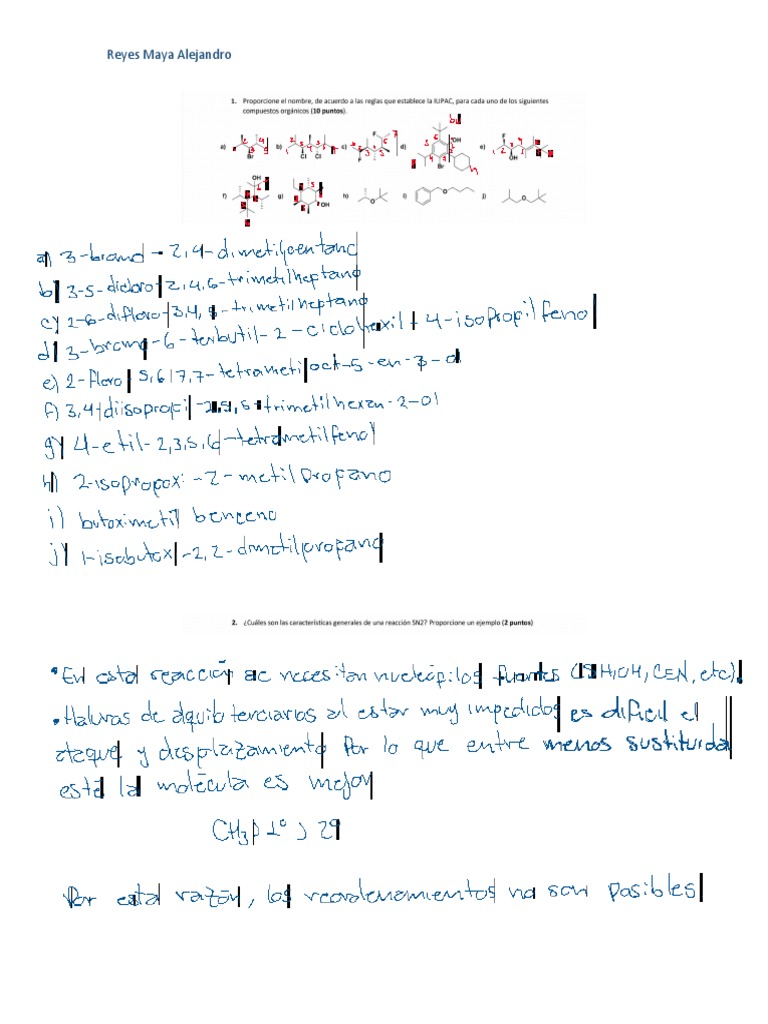 Reyes Maya Alejandro
1. Proporcione el nombre, de acuerdo a las reglas que establece la IUPAC, para cada uno de los siguientes
compuestos orgánicos (10 puntos).
a) b) c) d) e)
f) g) h) i) j)
a) 3-bromo-2,4-dimetilpentano
b) 3-5-dicloro-2,4,6-trimetilheptano
c) 2-6-difloro-3,4,5-trimetilheptano
d) 3-bromo-6-terbutil-2-ciclohexil-4-isopropilfenol
e) 2-floro-5,6,7,7-tetrametiloct-5-en-3-ol
f) 3,4-diisopropil-2,5,5-trimetilhexan-2-ol
g) 4-etil-2,3,5,6-tetrametilfenol
h) 2-isopropoxi-2-metilpropano
i) butoximetil benceno
j) 1-isobutoxi-2,2-dimetilpropano
2. ¿Cuáles son las características generales de una reacción SN2? Proporcione un ejemplo (2 puntos)
• En esta reacción se necesitan nucleópilos fuertes
• Haluros de alquilo terciarios al estar muy impedidos es dificil el
ataque y desplazamiento Por lo que entre menos sustituida
esté la molécula es mejor
CH3 > 1° > 2°
Por esta razón, los reordenamientos no son posibles